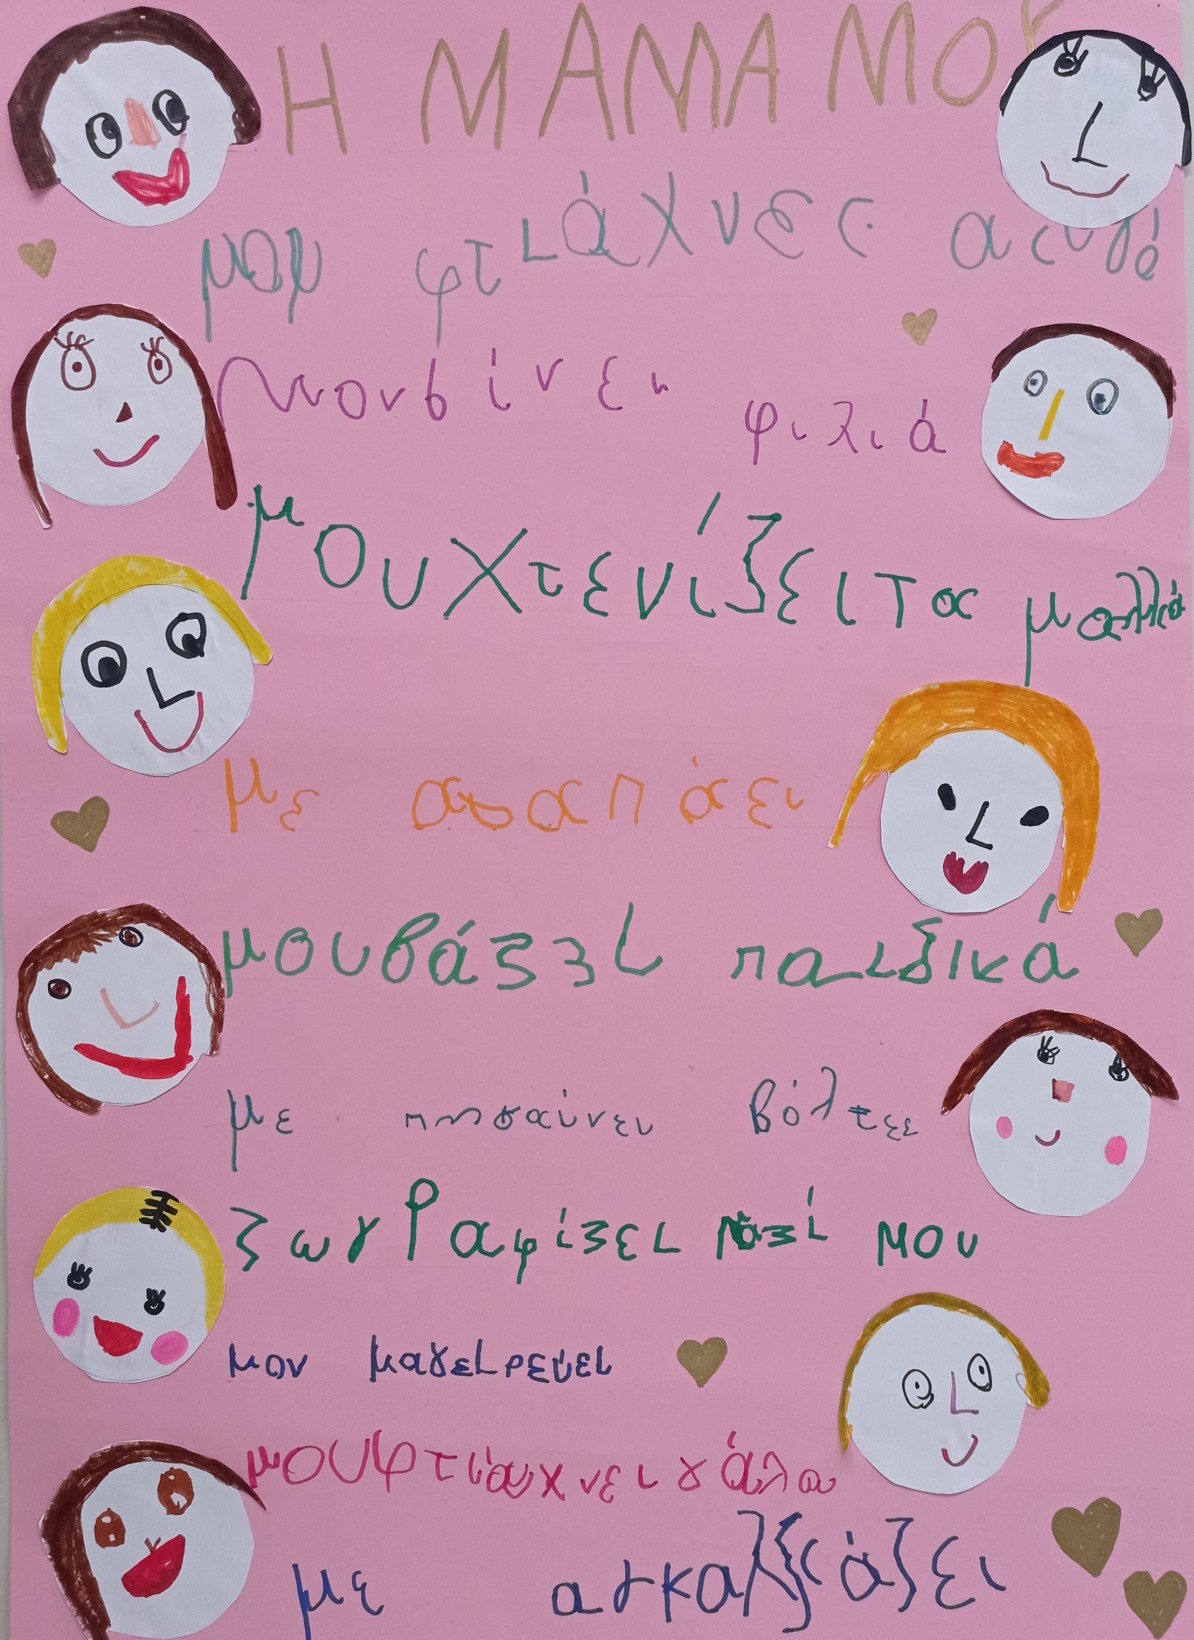 Η ΜΑΜΑ ΜΟΥ
μου φτιάχνες αευγό
μουδίνει φιλιά
μουχτενίζει τα μαλλιά
με αγαπάει
μουβάζει παιδικά
με πηγαίνει βόλτες
ζωγραφίζει μαζί μου
μου μαγειρεύει
μουφτιάχνει γάλα
με αγκαλιάζει